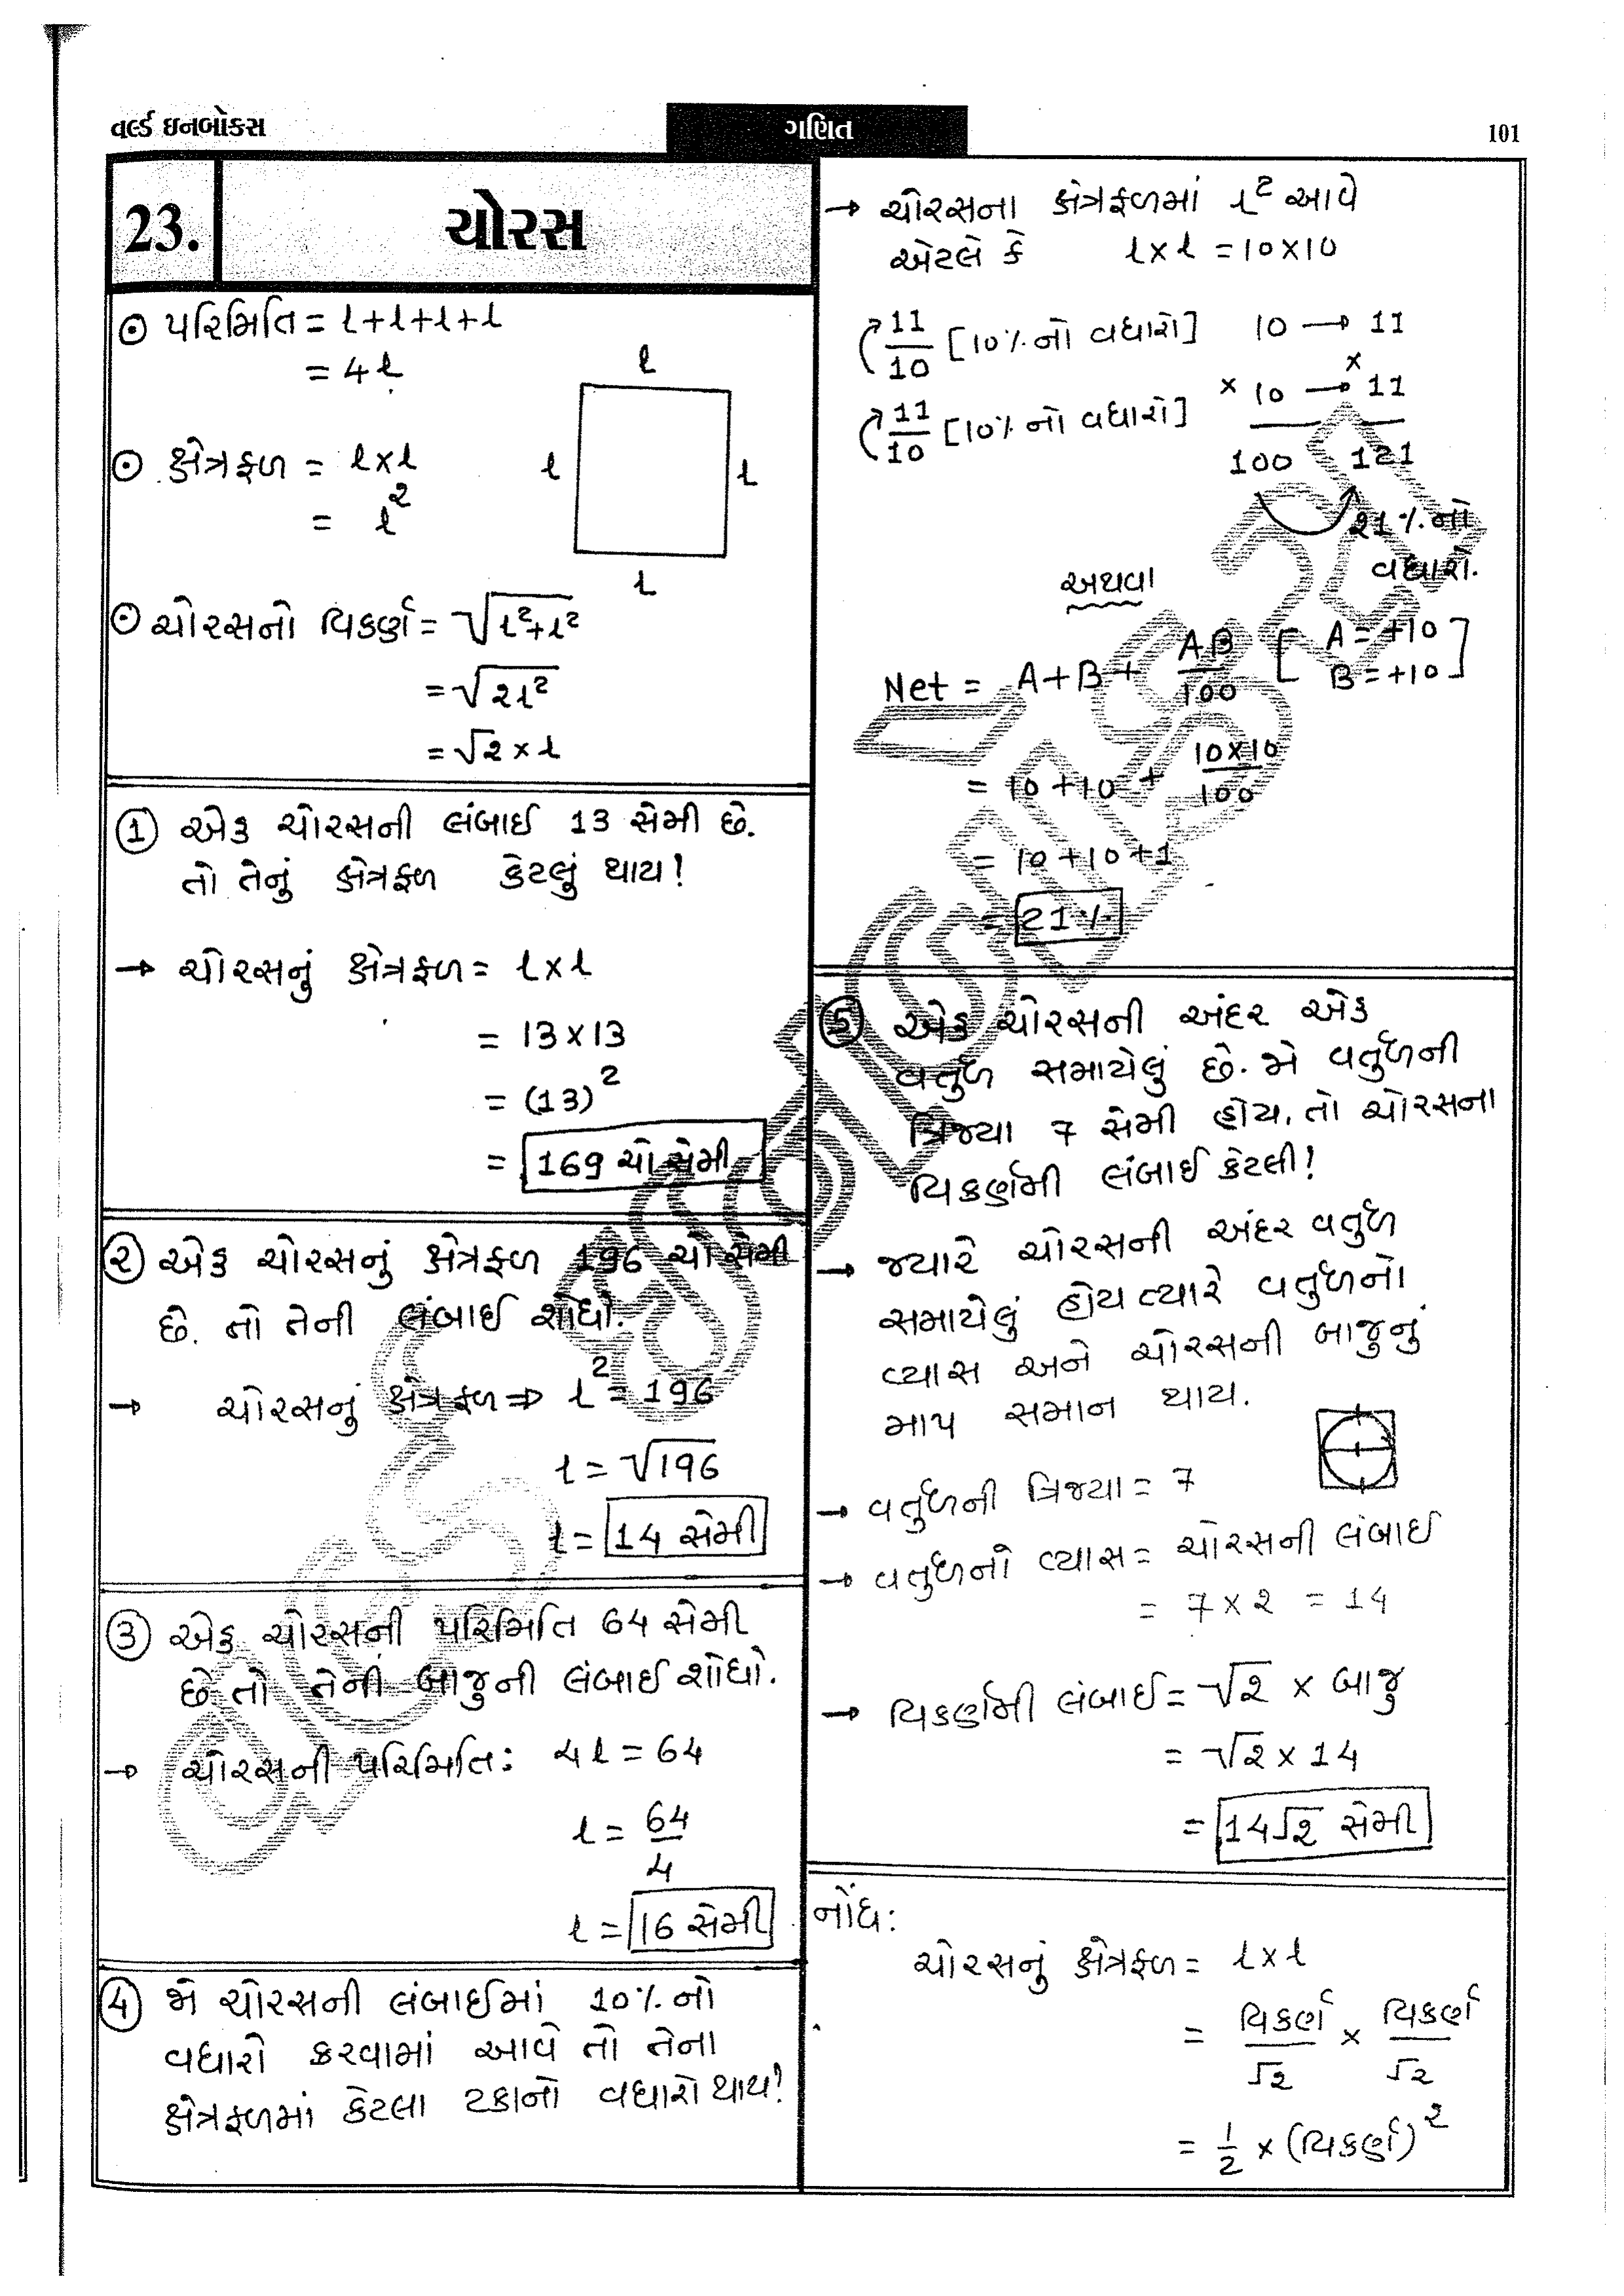 વર્લ્ડ ઇનબોક્સ
ગણિત
101
23.
ચોરસ
⊙ પરિમિતિ = l+l+l+l
= 4l
l
l
l
l
⊙ ક્ષેત્રફળ = l×l
= l²
⊙ ચોરસનો વિકર્ણ = √l²+l²
= √2l²
= √2 × l
① એક ચોરસની લંબાઈ 13 સેમી છે.
તો તેનું ક્ષેત્રફળ કેટલું થાય!
→ ચોરસનું ક્ષેત્રફળ = l×l
= 13×13
= (13)²
= 169 ચો સેમી
② એક ચોરસનું ક્ષેત્રફળ 196 ચો સેમી
છે. તો તેની લંબાઈ શોધો.
→ ચોરસનું ક્ષેત્રફળ ⇒ l² = 196
l = √196
l = 14 સેમી
③ એક ચોરસની પરિમિતિ 64 સેમી
છે. તો તેની બાજુની લંબાઈ શોધો.
→ ચોરસની પરિમિતિ: 4l = 64
l = 64/4
l = 16 સેમી
④ જો ચોરસની લંબાઈમાં 10% નો
વધારો કરવામાં આવે તો તેના
ક્ષેત્રફળમાં કેટલા ટકાનો વધારો થાય?
→ ચોરસના ક્ષેત્રફળમાં l² આવે
એટલે કે l×l = 10×10
11/10 [10% નો વધારો] 10 → 11
11/10 [10% નો વધારો] × 10 → × 11
100 121
21% નો
વધારો.
અથવા
Net = A+B+ AB/100 [A=+10 B=+10]
= 10+10+ 10×10/100
= 10+10+1
= 21%
⑤ એક ચોરસની અંદર એક
વર્તુળ સમાયેલું છે. જો વર્તુળની
ત્રિજ્યા 7 સેમી હોય, તો ચોરસના
વિકર્ણની લંબાઈ કેટલી!
→ જ્યારે ચોરસની અંદર વર્તુળ
સમાયેલું હોય ત્યારે વર્તુળનો
વ્યાસ અને ચોરસની બાજુનું
માપ સમાન થાય.
→ વર્તુળની ત્રિજ્યા = 7
→ વર્તુળનો વ્યાસ = ચોરસની લંબાઈ
= 7×2 = 14
→ વિકર્ણની લંબાઈ = √2 × બાજુ
= √2 × 14
= 14√2 સેમી
નોંધ:
ચોરસનું ક્ષેત્રફળ = l×l
= વિકર્ણ/√2 × વિકર્ણ/√2
= 1/2 × (વિકર્ણ)²